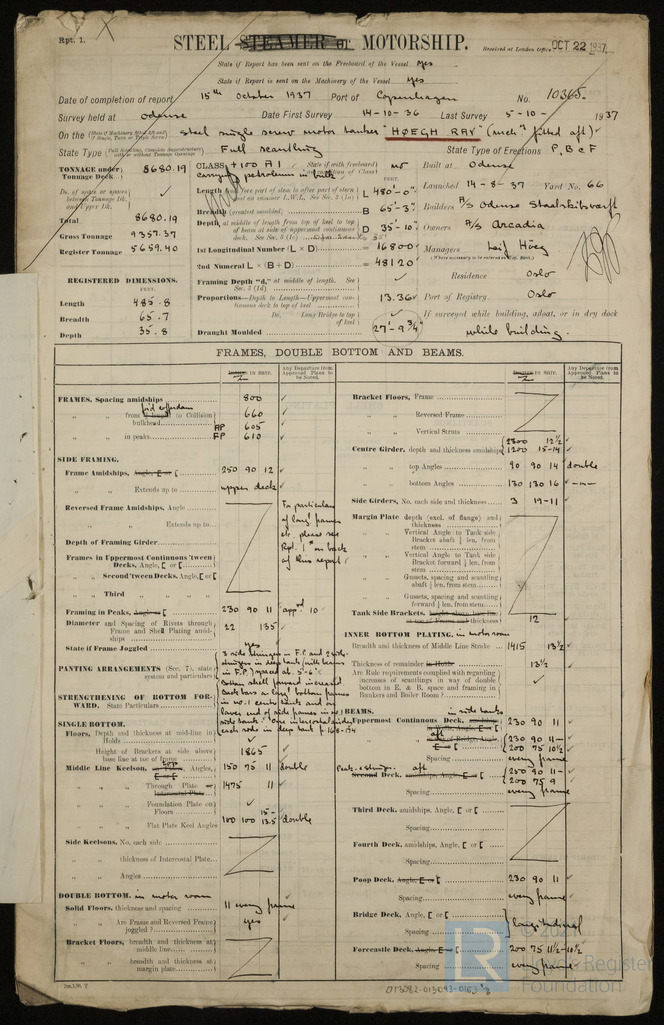 Rpt. 1.
STEEL STEAMER or MOTORSHIP.
Received at London Office OCT 22 1937
State if Report has been sent on the Freeboard of the Vessel Yes
State if Report is sent on the Machinery of the Vessel Yes
Date of completion of report 15th October 1937 Port of Copenhagen No. 10365
Survey held at Odense Date First Survey 14-10-36 Last Survey 5-10- 1937
On the steel single screw motor tanker "HØEGH RAY" (mach. fitted aft)
State Type Full scantling State Type of Erections P, B & F
TONNAGE under Tonnage Deck 8680.19
Do. of space or spaces between Tonnage Dk. and Upper Dk.
Total 8680.19
Gross Tonnage 9357.37
Register Tonnage 5659.40
REGISTERED DIMENSIONS.
FEET.
Length 485.8
Breadth 65.7
Depth 35.8
CLASS +100 A1 carrying petroleum in bulk
Length L 480'-0"
Breadth (greatest moulded) B 65'-3"
Depth D 35'-10"
1st Longitudinal Number (L × D) = 16800
2nd Numeral L × (B + D) = 48120
Framing Depth "d," at middle of length. See Sec. 3 (1d)
Proportions—Depth to Length—Uppermost continuous deck to top of keel 13.36
Do. Long Bridge to top of keel
Draught Moulded 27'-9¾"
Built at Odense
Launched 14-8-37 Yard No. 66
Builders A/S Odense Staalskibsværft
Owners A/S Arcadia
Managers Leif Höeg
Residence Oslo
Port of Registry Oslo
If surveyed while building, afloat, or in dry dock
while building.
FRAMES, DOUBLE BOTTOM AND BEAMS.
Any Departure from Approved Plans to be Noted.
FRAMES, Spacing amidships 800
from to Collision bulkhead 660
AP 605
in peaks FP 610
SIDE FRAMING.
Frame Amidships, Angle, 250 90 12
Extends up to upper deck
Reversed Frame Amidships, Angle
Extends up to
Depth of Framing Girder
Frames in Uppermost Continuous 'tween Decks, Angle, [ or [
Second 'tween Decks, Angle, [ or [
Third
For particulars of long! frames etc. please see Rpt. 1* on back of this report
Framing in Peaks, Angle or [ 230 90 11 appd 10
Diameter and Spacing of Rivets through Frame and Shell Plating amidships 22 135
State if Frame Joggled yes
PANTING ARRANGEMENTS (Sec. 7), state system and particulars
STRENGTHENING OF BOTTOM FORWARD. State Particulars
SINGLE BOTTOM.
Floors, Depth and thickness at mid-line in Holds
Height of Brackets at side above base line at toe of frame 1865
Middle Line Keelson, Angles, 150 75 11 double
Through Plate 1475 11
Foundation Plate on Floors
Flat Plate Keel Angles 100 100 15-13.5 double
Side Keelsons, No. each side
thickness of Intercostal Plate
Angles
DOUBLE BOTTOM. in motor room
Solid Floors, thickness and spacing 11 every frame
Are Frame and Reversed Frame joggled? yes
Bracket Floors, breadth and thickness at middle line
breadth and thickness at margin plate
Bracket Floors, Frame
Reversed Frame
Vertical Struts
Centre Girder, depth and thickness amidships 2300 12½ 1200 15-14
top Angles 90 90 14 double
bottom Angles 130 130 16 -"-
Side Girders, No. each side and thickness 3 19-11
Margin Plate depth (excl. of flange) and thickness
Vertical Angle to Tank side Bracket abaft ¼ len. from stem
Vertical Angle to Tank side Bracket forward ¼ len. from stem
Gussets, spacing and scantling abaft ¼ len. from stem
Gussets, spacing and scantling forward ¼ len. from stem
Tank Side Brackets, 12
INNER BOTTOM PLATING. in motor room
Breadth and thickness of Middle Line Strake 1415 13½
Thickness of remainder in Holds 13½
Are Rule requirements complied with regarding increases of scantlings in way of double bottom in E. & B. space and framing in Bunkers and Boiler Room?
BEAMS. in side tanks
Uppermost Continuous Deck, 230 90 11
aft 230 90 11
200 75 10½
Spacing every frame
Second Deck, amidships, Angle, [ or [ aft 250 90 11
200 75 9
Spacing every frame
Third Deck, amidships, Angle, [ or [
Spacing
Fourth Deck, amidships, Angle, [ or [
Spacing
Poop Deck, Angle, [ or [ 230 90 11
Spacing every frame
Bridge Deck, Angle, [ or [
Spacing longitudinal
Forecastle Deck, Angle, [ or [ 200 75 11½-10½
Spacing every frame
© 2021
Lloyd's Register Foundation
013082-013093-0163